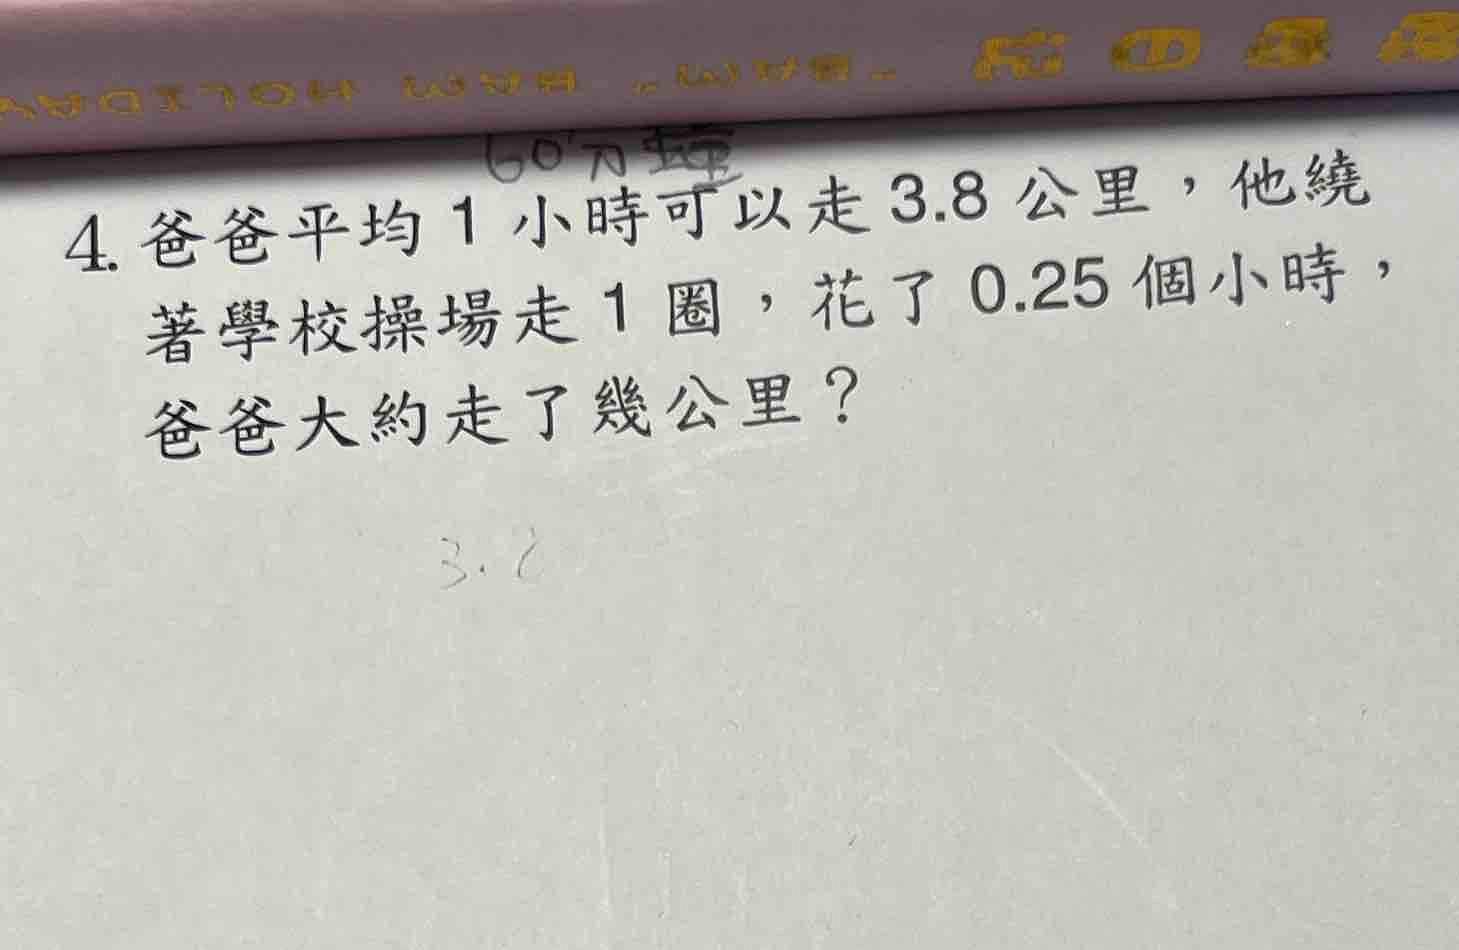 60分鐘
4. 爸爸平均 1 小時可以走 3.8 公里，他繞
著學校操場走 1 圈，花了 0.25 個小時，
爸爸大約走了幾公里？
3.